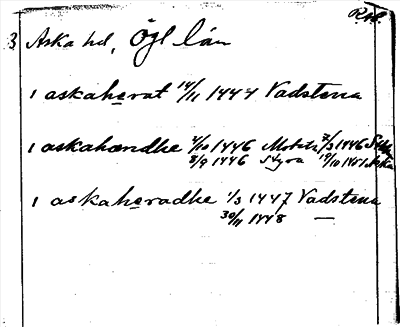 3 Aska hd, Ögl län
i askaherat 14/11 1444 Vadstena
i askahændhe 4/10 1446 7/3 1446
8/9 1446 Styra 19/10 1451 Aska
i askaheradhe 1/3 1447 Vadstena
30/11 1448 —